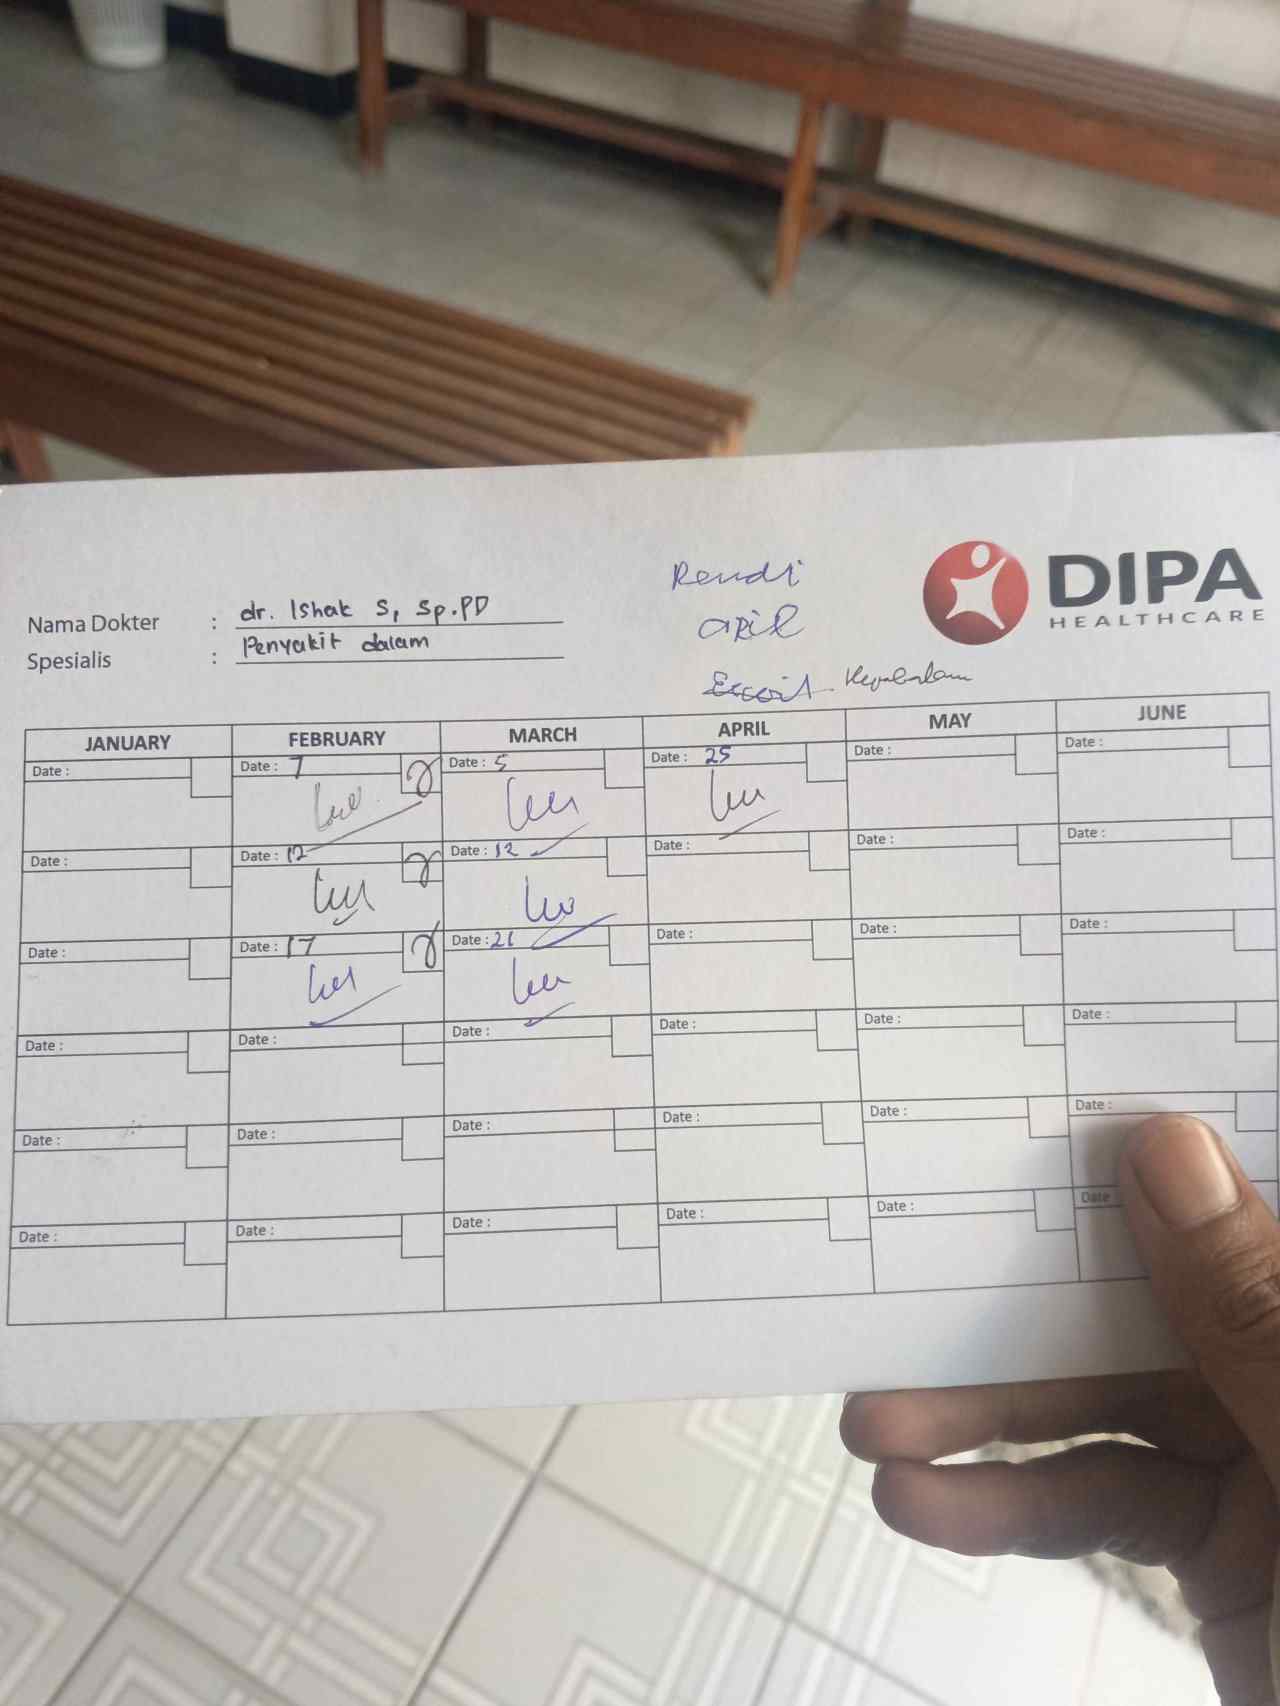 DIPA
HEALTHCARE
Nama Dokter : dr. Ishak S, Sp.PD
Spesialis : Penyakit dalam
Rendi
april
JANUARY FEBRUARY MARCH APRIL MAY JUNE
Date : Date : 7 Date : 5 Date : 25 Date : Date :
Date : Date : 12 Date : 12 Date : Date : Date :
Date : Date : 17 Date : 21 Date : Date : Date :
Date : Date : Date : Date : Date : Date :
Date : Date : Date : Date : Date : Date :
Date : Date : Date : Date : Date : Date